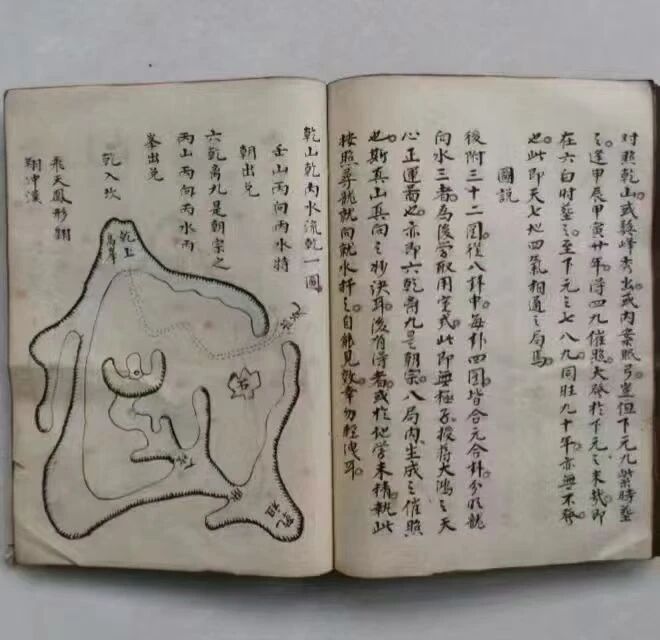 對照乾山。或後峰秀出。或内案眠弓。豈但下元九紫時塟
之。逢甲辰甲寅廿年。得四九催照。大發於下元之末哉。即
在六白时塟之。至下元之七八九。同壯九十年。亦無不發
也。此即天七地四氣相通之局焉。
圖說
後附三十二圖。從八卦中。每卦四圖。皆合元合卦。分別龍
向水三者。為後学取用定式。此即無極子授蔣大鴻之天
心正運啚也。亦即六乾离九是朝宗。八局内。生成之催照
也。斯真山真向之秒決耳。後有得者。或於他学未精。執此
按照尋龍就向就水扦之。自能見效。幸勿輕洩耳
乾山乾向水流乾一圖
壬山丙向丙水特
朝出兌
六乾离九是朝宗之
丙山丙向丙水丙
峯出兌
乾入坎
飛天鳳形翱
翔冲漢
乾上
高峯